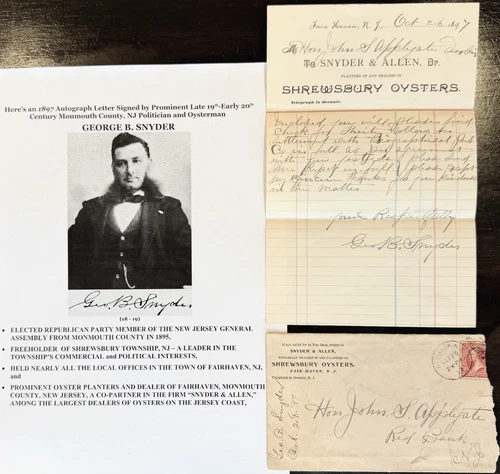 Here's an 1897 Autograph Letter Signed by Prominent Late 19th-Early 20th
Century Monmouth County, NJ Politician and Oysterman
GEORGE B. SNYDER
Geo. B. Snyder
(18 - 19)
• ELECTED REPUBLICAN PARTY MEMBER OF THE NEW JERSEY GENERAL
ASSEMBLY FROM MONMOUTH COUNTY IN 1895,
• FREEHOLDER OF SHREWSBURY TOWNSHIP, NJ – A LEADER IN THE
TOWNSHIP'S COMMERCIAL and POLITICAL INTERESTS,
• HELD NEARLY ALL THE LOCAL OFFICES IN THE TOWN OF FAIRHAVEN, NJ, and
• PROMINENT OYSTER PLANTERS AND DEALER OF FAIRHAVEN, MONMOUTH
COUNTY, NEW JERSEY, A CO-PARTNER IN THE FIRM "SNYDER & ALLEN,"
AMONG THE LARGEST DEALERS OF OYSTERS ON THE JERSEY COAST,
Fair Haven, N. J., Oct 26 1897
M Hon. John S Applegate
To SNYDER & ALLEN, Dr.
PLANTERS OF AND DEALERS IN
SHREWSBURY OYSTERS.
Telegraph to Oceanic.
Enclosed you will please find
Check for Thirty Dollars in
settlement with Biographical Pub
Co in full as per agreement
with you
in full please
for
sincere thanks for your kindness
in this matter
yours Respectfully
Geo B. Snyder
If not called for in Ten Days, return to
SNYDER & ALLEN,
WHOLESALE DEALERS IN AND PLANTERS OF
SHREWSBURY OYSTERS.
FAIR HAVEN, N. J.
Telegraph to Oceanic, N. J.
Hon. John. S. Applegate
Red Bank
N.J.
Geo. B. Snyder
Oct. 26. 97